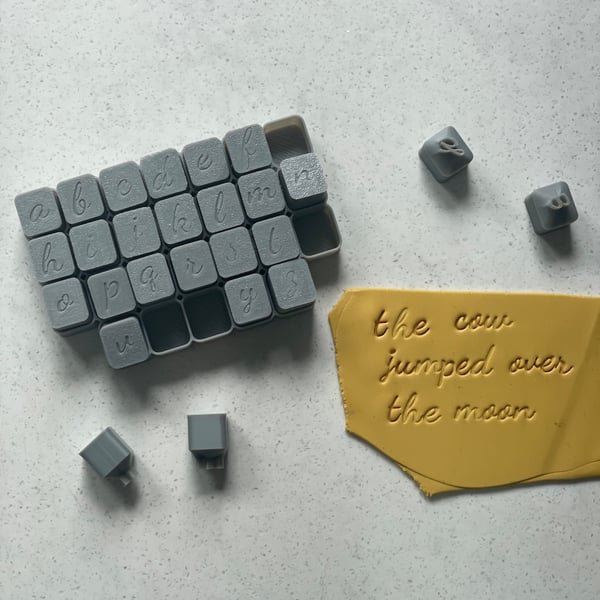 a b c d e f
h i j k l m n
o p q r s t
v y z
the cow
jumped over
the moon